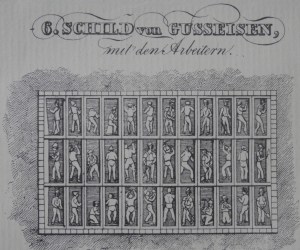 6. SCHILD von GUSSEISEN,
mit den Arbeitern.